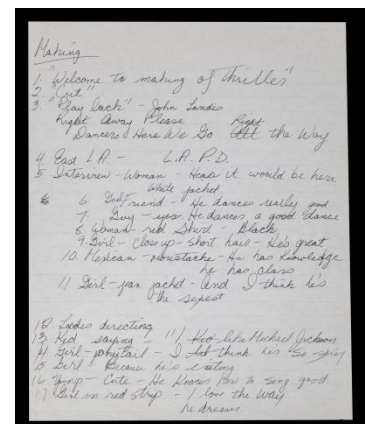 Making
1. "Welcome to making of Thriller"
2. "Cut"
3. "Stay back" - John Landis
Right Away Please Right
Dancers Here We Go the Way
4. East L.A. - L.A.P.D.
5. Interview - Woman - Hears it would be here
White jacket
6. Girlfriend - He dances really good
7. Guy - yes. He dances a good dance
8. Woman - red Shirt - Black
9. Girl - closeup - short hair - He's great
10. Mexican - moustache - He has knowledge
he has class
11 Girl - jacket - and I think he's
the
12 Ladies directing
13. Kid saying - "I like Michael Jackson
14 Girl - ponytail - I think he's so
15 Girl Because he's exciting
16 - Cute - He knows how to sing good
17 Girl in red strip - I love the way
he dresses